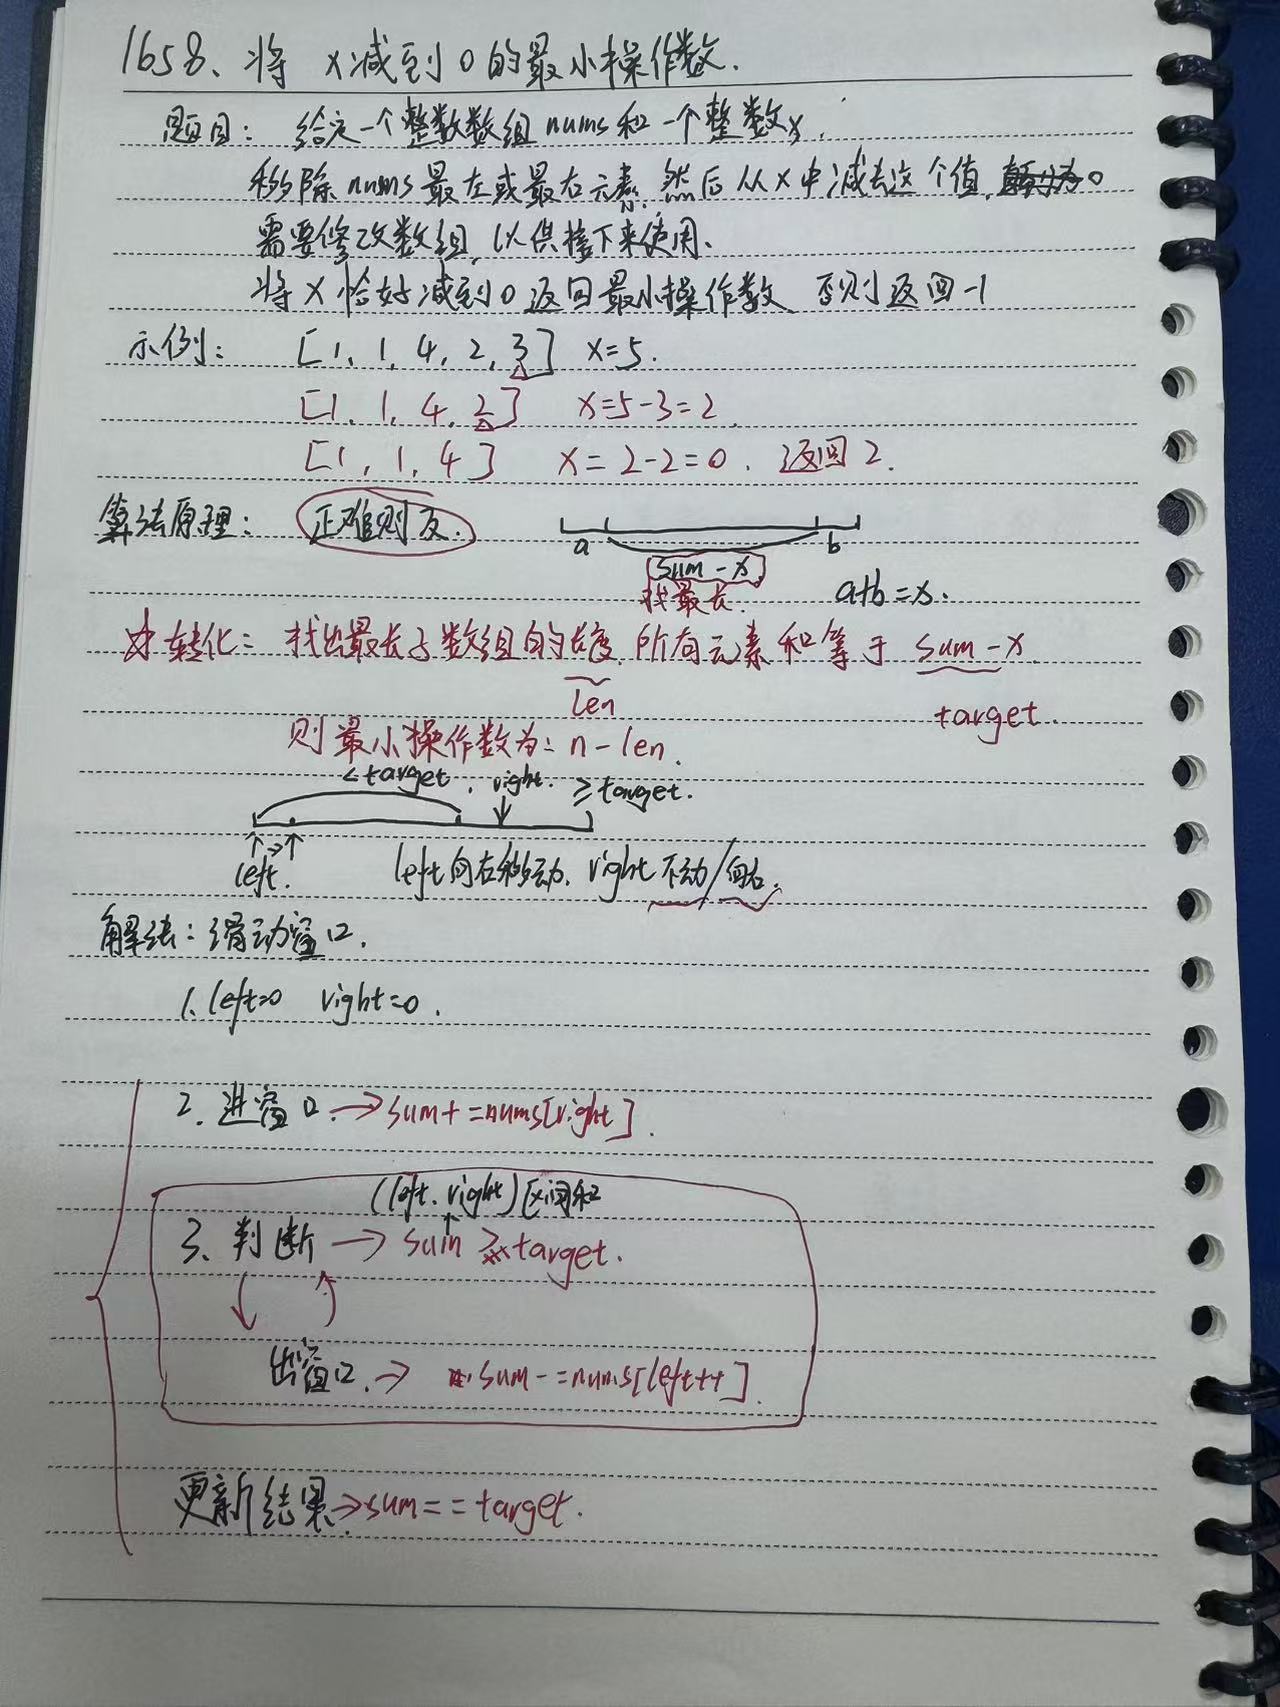 1658、将 x减到0的最小操作数.
题目: 给定一个整数数组nums和一个整数x.
移除nums最左或最右元素,然后从x中减去这个值,
需要修改数组,以供接下来使用.
将x恰好减到0返回最小操作数 否则返回-1
示例: [1, 1, 4, 2, 3] x=5.
[1, 1, 4, 2] x=5-3=2
[1, 1, 4] x=2-2=0. 返回2.
算法原理: 正难则反.
a sum-x b
找最长. a+b=x.
转化: 找出最长子数组的长度,所有元素和等于 sum-x
len target.
则最小操作数为: n-len.
<target. right. ≥target.
left. left向右移动, right不动/向右.
解法:滑动窗口.
1. left=0 right=0.
2. 进窗口.→sum+=nums[right].
(left, right)区间和
3. 判断→sum ≥ target.
出窗口.→ sum-=nums[left++].
更新结果→sum==target.